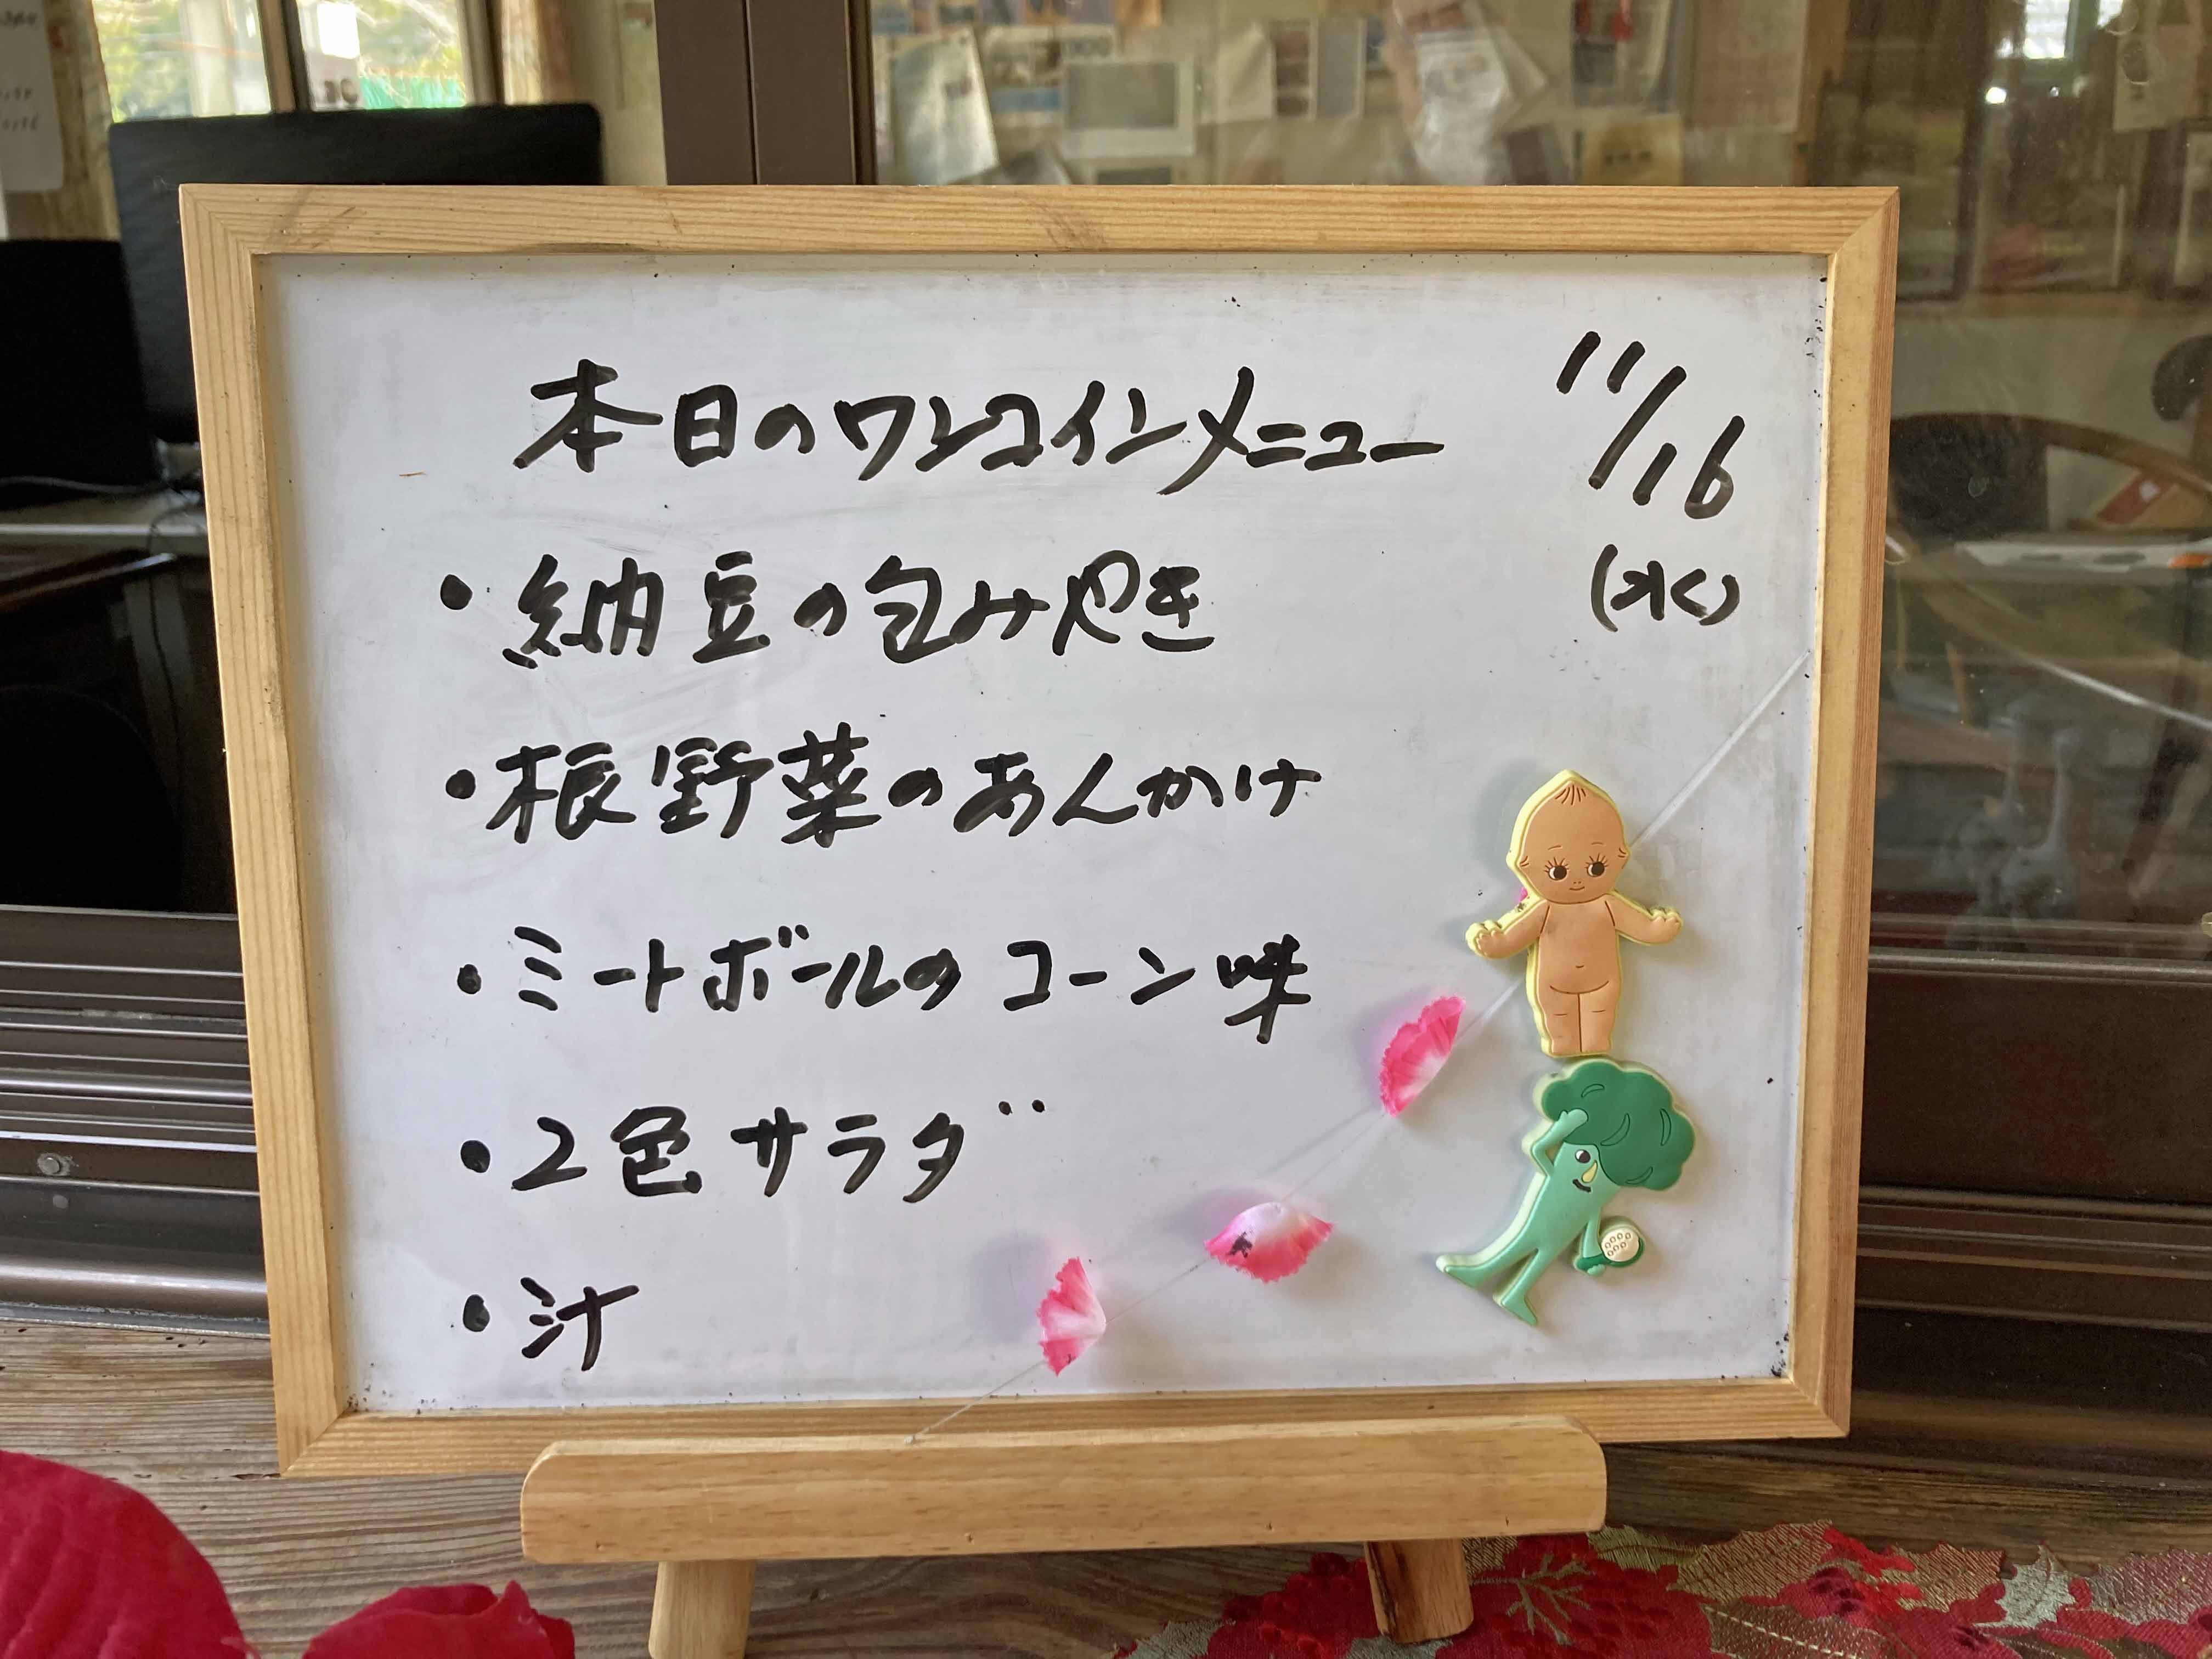 本日のワンコインメニュー
11/16
(水)
・納豆の包みやき
・根野菜のあんかけ
・ミートボールのコーン味
・2色サラダ
・汁